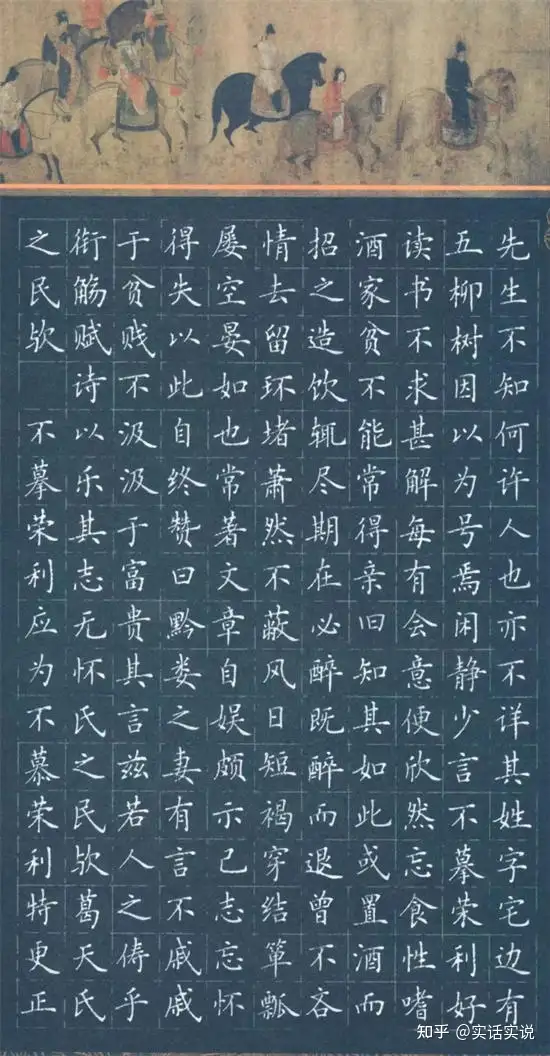 先生不知何许人也亦不详其姓字宅边有
五柳树因以为号焉闲静少言不摹荣利好
读书不求甚解每有会意便欣然忘食性嗜
酒家贫不能常得亲旧知其如此或置酒而
招之造饮辄尽期在必醉既醉而退曾不吝
情去留环堵萧然不蔽风日短褐穿结箪瓢
屡空晏如也常著文章自娱颇示己志忘怀
得失以此自终赞曰黔娄之妻有言不戚戚
于贫贱不汲汲于富贵其言兹若人之俦乎
衔觞赋诗以乐其志无怀氏之民欤葛天氏
之民欤 不摹荣利应为不慕荣利特更正
知乎 @实话实说